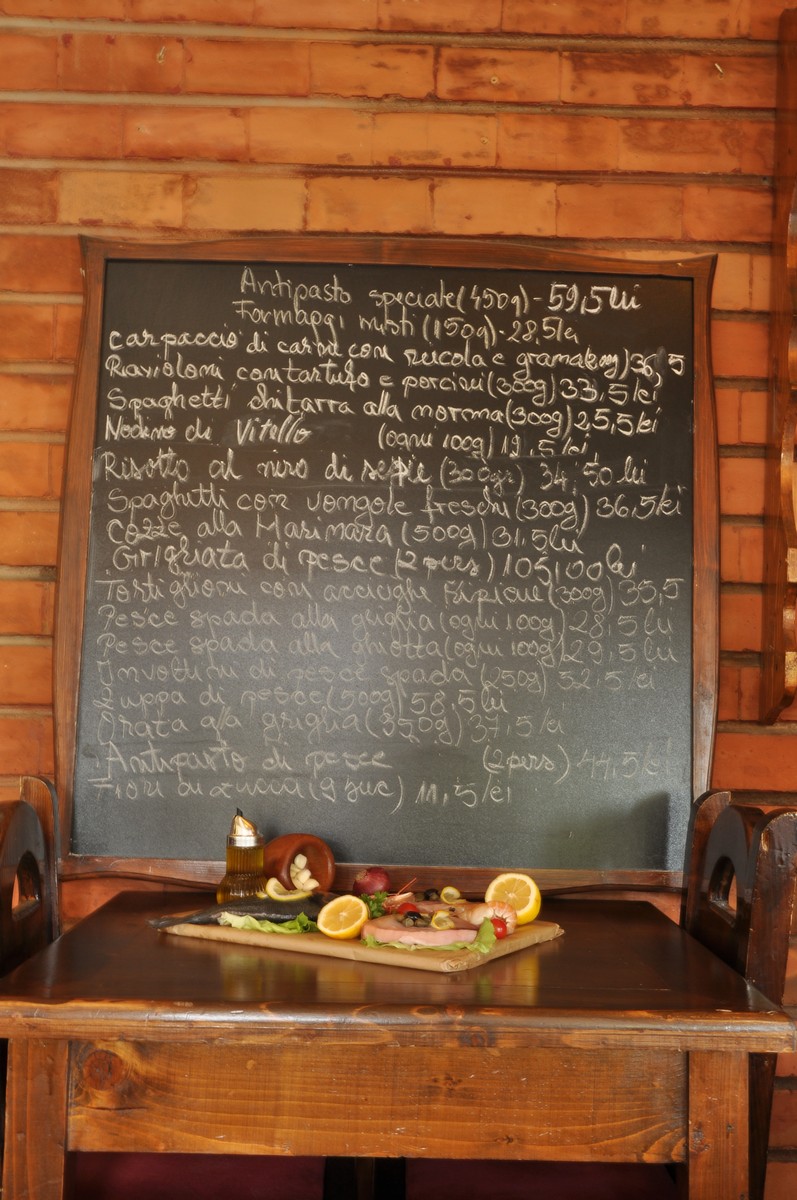 Antipasto speciale (450g) - 59,5 lei
Formaggi misti (150g) - 28,5 lei
Carpaccio di carne con rucola e grama(200g) 36,5
Ravioloni con tartufo e porcini (300g) 33,5 lei
Spaghetti chitarra alla norma (300g) 25,5 lei
Nodino di Vitello (ogni 100g) 19,5 lei
Risotto al nero di sepie (300gr) 34,50 lei
Spaghetti con vongole freschi (300g) 36,5 lei
Cozze alla Marinara (500g) 31,5 lei
Grigliata di pesce (2 pers) 105,00 lei
Tortiglioni con acciughe (300g) 35,5
Pesce spada alla griglia (ogni 100g) 28,5 lei
Pesce spada alla ghiotta (ogni 100g) 29,5 lei
Involtini di pesce spada (250g) 52,5 lei
Zuppa di pesce (500g) 58,5 lei
Orata alla griglia (350g) 37,5 lei
Antipasto di pesce (2pers) 44,5 lei
Fiori di zucca (9 buc) 11,5 lei